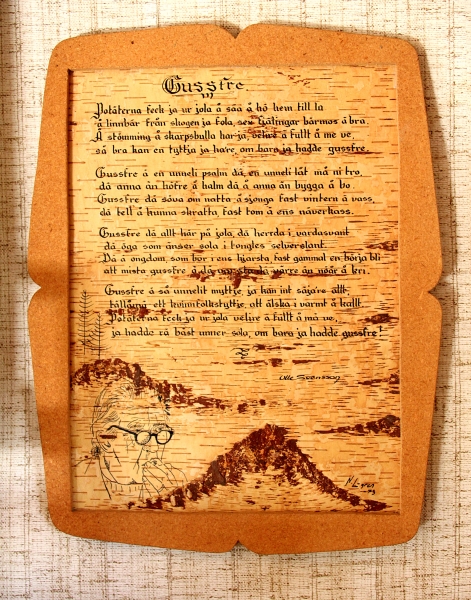 Gussfre.
Potäterna feck ja ur jola å såa å hö hem till la
å linnbär från skogen ja fola, sex Gälingar bärmos å bra.
Å stömming å skarpsbulla har ja, velire å fullt å me ve,
så bra kan en tyttja ja ha're, om bara ja hadde gussfre.
Gussfre ä en unneli psalm dä, en unneli låt må ni tro,
dä anna än höfre å halm dä å anna än bygga å bo.
Gussfre dä sova om natta, å sjonga fast vintern ä vass,
dä tell å kunna skratta, fast tom ä ens näverkass.
Gussfre dä allt här på jola, dä herrda i vardasvant
dä öga som änser sola i tongles selverslant.
Dä ä ongdom, som bor i ens hjarsta, fast gammal en börja bli
att mista gussfre å da värre än nöår å kri.
Gussfre ä så unnelit mytje, ja kan int säja're allt,
ett kvinnfolkstytje, att älska i varmt å kallt.
Potäterna feck ja ur jola velire å fullt å må ve,
ja hadde rå bäst unner sola, om bara ja hadde gussfre!
Olle Svensson